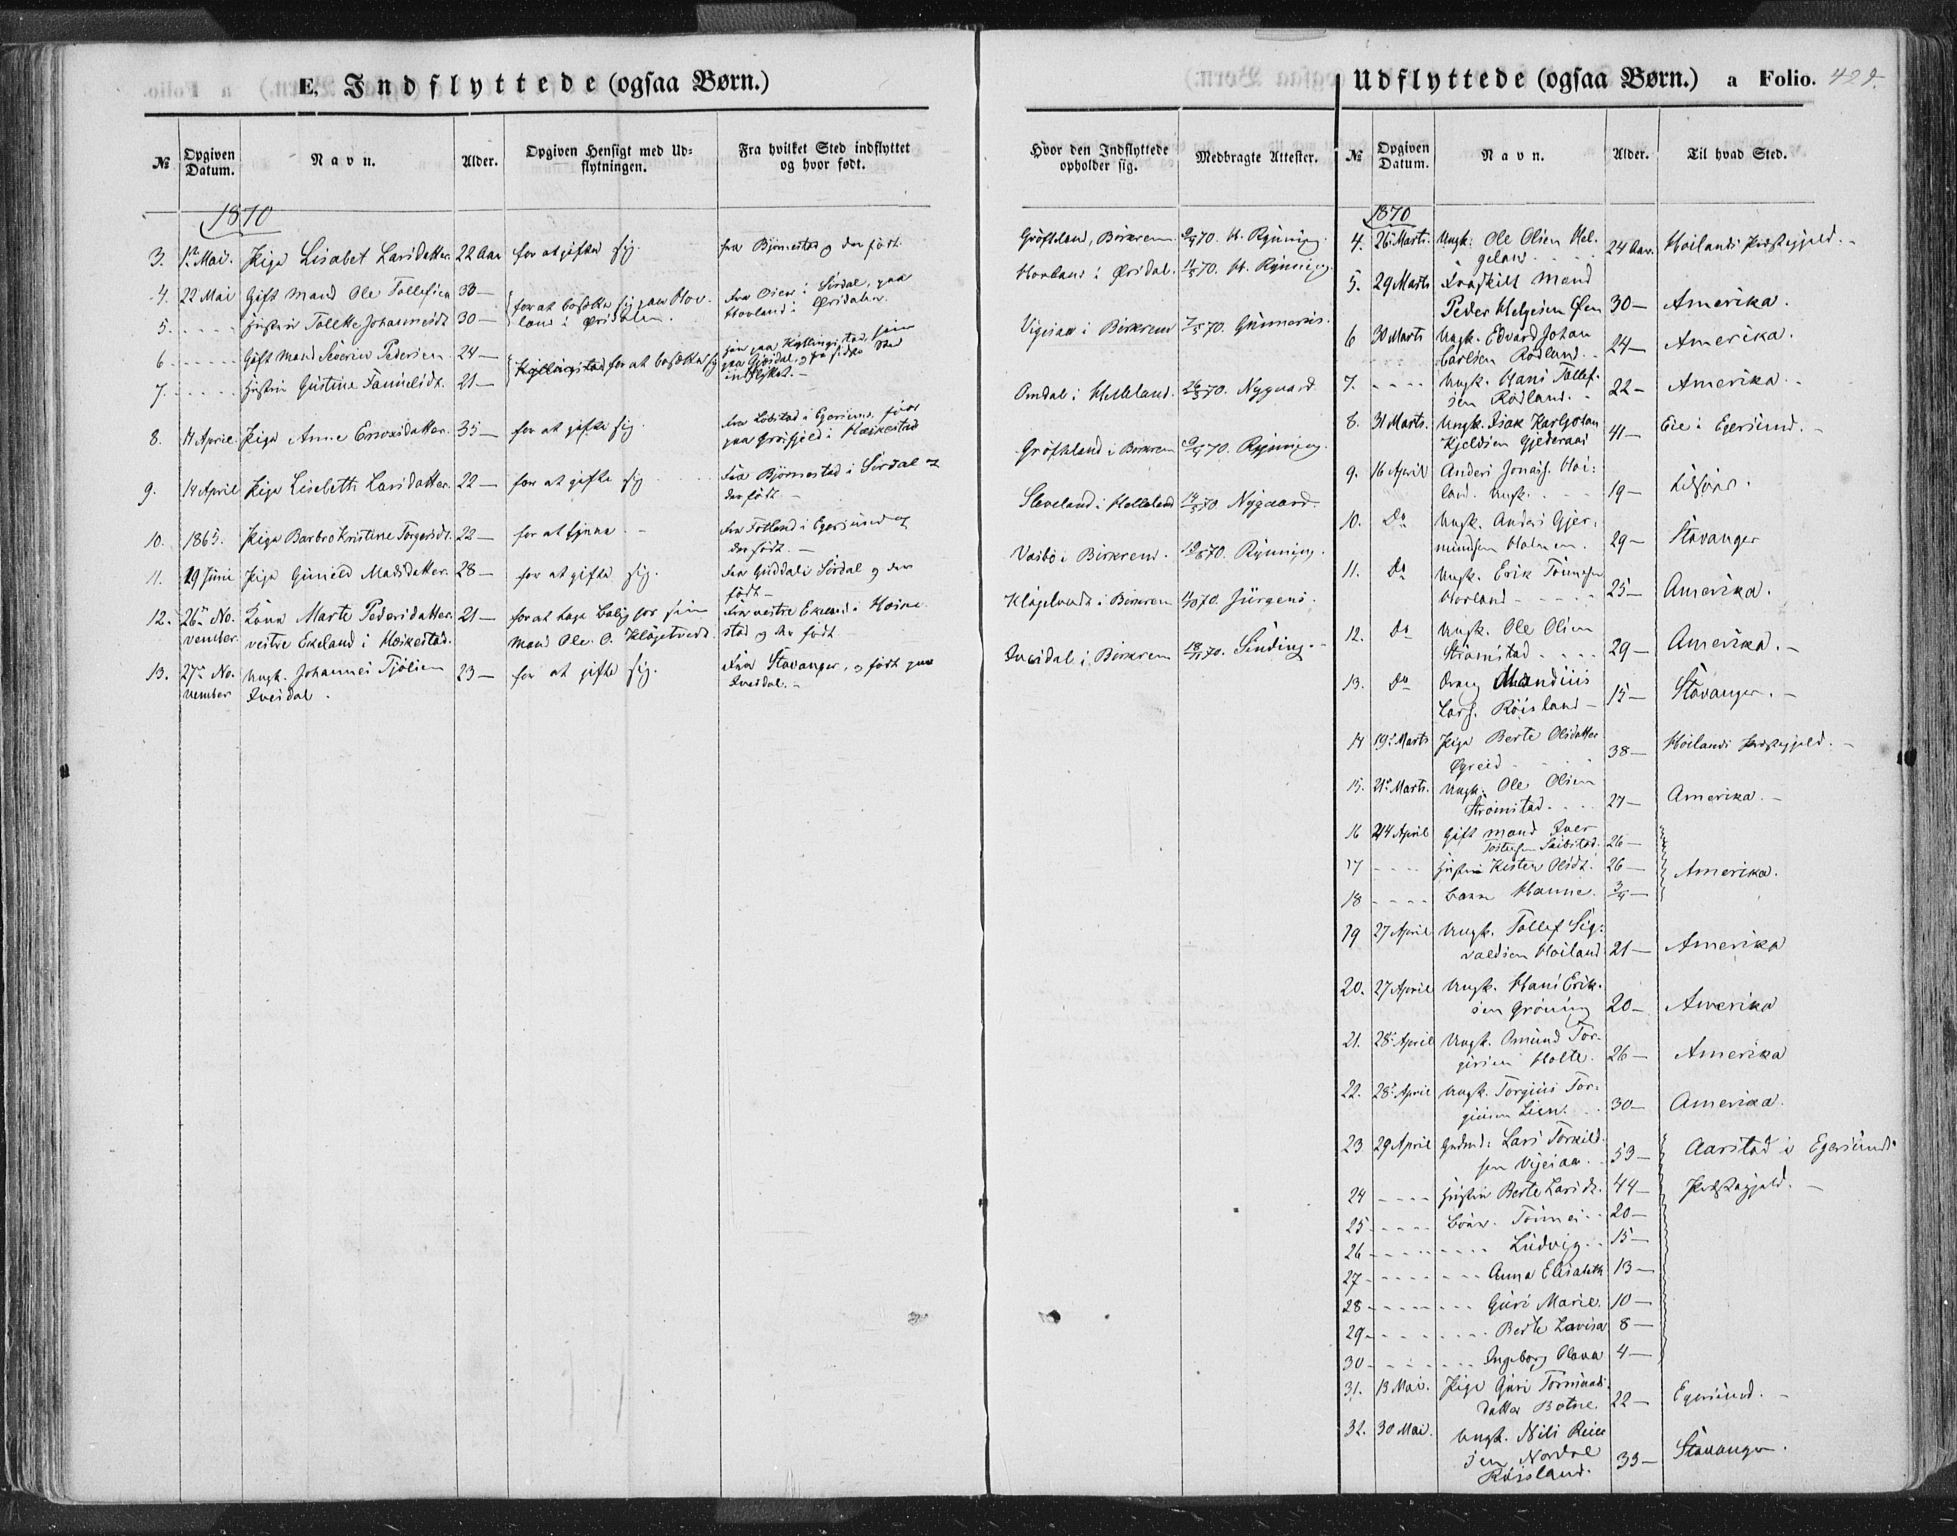 E. Indflyttede (ogsaa Børn.)
№ Opgiven Datum. Navn. Alder. Opgiven Hensigt med Udflytningen. Fra hvilket Sted indflyttet og hvor født.
1870
3. 1ste Mai. Pige Lisabet Larsdatter 22 Aar for at gifte sig. fra Bjørnestad og der født.
4. 22 Mai Gift Mand Ole Tollefsen 33—
for at bosætte sig paa Hovland i Ørsdalen. Fra Øien i Sirdal, paa Hovland i Ørsdalen
5. - - - - Hustru Tollke Johannesdt. 30—
6 - - - - Gift Mand Severin Pedersen 24—
for at bosætte sig
7. - - - - Hustru Gustine Danielsdt. 21—
8. 11 April. Pige Anne Ericksdatter. 35— for at gifte sig. Fra i Egersund, født paa Grøsfjeld i Heskestad
9. 14 April Pige Lisebeth Larsdatter. 22— for at gifte sig Fra Bjørnestad i Sirdal og der født.—
10. 1865. Pige Barbro Kristine Torgersdt. 22— for at tjene. — fra Fotland i Egersund og der født.—
11. 19 Juni Pige Gunild Madsdatter. 28— for at gifte sig. Fra Guddal i Sirdal og der født—
12. 26de November. Kona Marte Pedersdatter. vestre Ekeland i Heskestad. 21— for at tage Bolig for sin Mand Ole O. Kløgetvedt. Fra vestre Ekeland i Heskestad og der født
13. 27de November Ungk. Johannes Tjølsen Ivesdal. 23— for at gifte sig. Fra Stavanger, og født paa Ivesdal.—
Hvor den Indflyttede opholder sig. Medbragte Attester.
Grøfteland, Birkrem 70. H. Rynning.
Hovland i Ørsdal. 11/5 70. H. Rynning.
Vigesaa i Birkrem 7/5 70. Gunnerus.
Omdal i Helleland. 70. Nygaard
Grøfteland i Birkrem 70. Rynning.
Sleveland i Helleland 70. Nygaard.
Vasbø i Birkrem. 70. Rynning.
Kløgetvedt i Birkrem 70. Jürgens.
Ivesdal i Birkrem 18/11 70. Sinding.
Udflyttede (ogsaa Børn.) a Folio. 429.
№ Opgiven Datum. Navn. Alder. Til hvad Sted.
1870
4. 26 Marts. Ungk: Ole Olsen Helgeland. 24 Aar. Høilands Præstegjeld.—
5. 29 Marts Fraskilt Mand Peder Helgesen Øen 30— Amerika.
6 30 Marts Ungk. Edvard Johan Carlsen Rødland. 24— Amerika.
7. - - - - Ungk. Hans Tollefsen Rødland. 22— Amerika.
8. 31 Marts. Ungk. Isak Karl Kjeldsen Gjederaas 41— Eie i Egersund.—
9. 16 April Anders Jonass. Høiland. Ungk. 19—
10. Do Ungk. Anders Gjermundsen Holmen. 29— Stavanger
11. Do Ungk. Erik Tønnesen Hovland 25— Amerika.
12. Do Ungk. Ole Olsen Strømstad. 29— Amerika.—
13. Do Dreng Mandius Lars. Røisland— 15— Stavanger.—
14 19de Marts Pige Berte Olsdatter Øgreid. 38— Høilands Præstegjeld.—
15. 21de Marts. Ungk. Ole Olsen Strømstad. 27— Amerika.—
16 24 April Gift Mand Iver Tostensen Seibstad. 26—
17 - - - - Hustru Kisten Olsdt. 26— Amerika.
18 - - - - Barn Hanne. 3/4—
19 27 April Ungk. Tollef Sigvaldsen Høiland. 21— Amerika
20. 27 April Ungk. Hans Eriksen Grøning 20— Amerika
21. 28de April Ungk. Omund Torgersen Holte. 26— Amerika
22. 28de April Ungk. Torgius Torgiusen Lien. 30— Amerika.
23 29 April Gmd: Lars Torkildsen Vigesaa. 53— Aarstad i Egersunds
24 - - - - Hustru Berte Larsdt. 44— Præstegjeld.—
25 - - - - Børn. Tønnes. 20—
26 - - - - Ludvig. 15—
27 - - - - Anna Elisabeth 13—
28 - - - - Guri Marie. 10—
29 - - - - Berte Lovisa 8—
30 - - - - Ingeborg Olava 4—
31. 13 Mai. Pige Guri Tormodsdatter Botne. 22— Egersund.—
32. 30 Mai. Ungk. Nils Reiersen Nordre Røisland. 33— Stavanger.